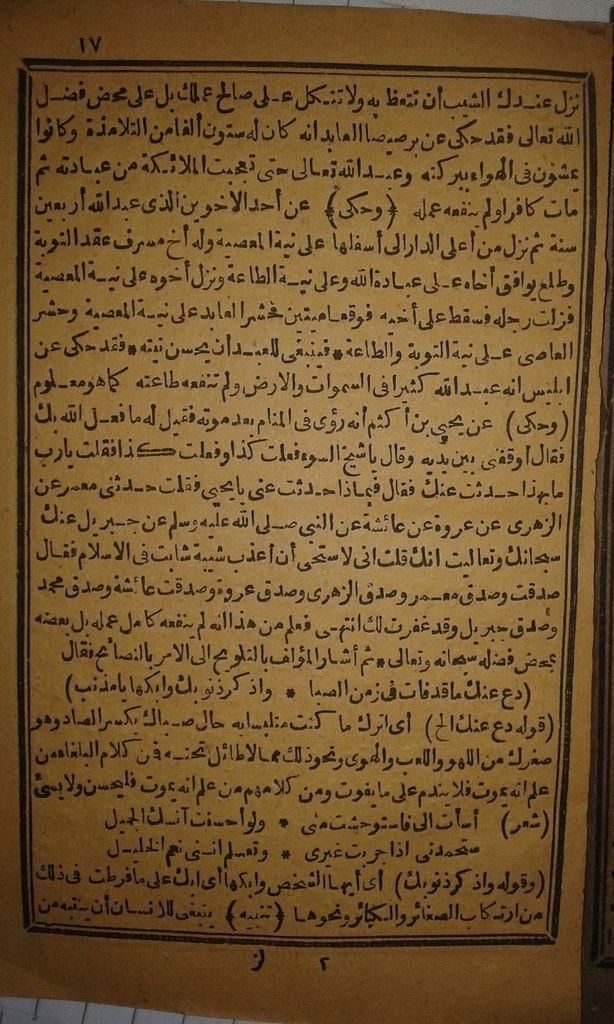 ١٧
نزل عندك الشيب أن تتعظ به ولا تتكل على صالح عملك بل على محض فضل
الله تعالى فقد حكى عن برصيصا العابد انه كان له ستون ألفا من التلامذة وكانوا
يمشون فى الهواء ببركته وعبد الله تعالى حتى تعجبت الملائكة من عبادته ثم
مات كافرا ولم ينفعه عمله (وحكى) عن أحد الاخوين الذى عبد الله أربعين
سنة ثم نزل من أعلى الدار الى أسفلها على نية المعصية وله أخ مسرف عقد التوبة
وطلع يوافق أخاه على عبادة الله وعلى نية الطاعة ونزل أخوه على نية المعصية
فزلت رجله فسقط على أخيه فوقعا ميتين فحشر العابد على نية المعصية وحشر
العاصى على نية التوبة والطاعة * فينبغى للعبد أن يحسن نيته * فقد حكى عن
ابليس انه عبد الله كثيرا فى السموات والارض ولم تنفعه طاعته كما هو معلوم
(وحكى) عن يحيى بن أكثم أنه رؤى فى المنام بعد موته فقيل له ما فعل الله بك
فقال أوقفنى بين يديه وقال يا شيخ السوء فعلت كذا وفعلت كذا فقلت يارب
ما بهذا حدثت عنك فقال فبماذا حدثت عنى يا يحيى فقلت حدثنى معمر عن
الزهرى عن عروة عن عائشة عن النبى صلى الله عليه وسلم عن جبريل عنك
سبحانك وتعاليت انك قلت انى لاستحى أن أعذب شيبة شابت فى الاسلام فقال
صدقت وصدق معمر وصدق الزهرى وصدق عروة وصدقت عائشة وصدق محمد
وصدق جبريل وقد غفرت لك انتهى فعلم من هذا انه لم ينفعه كامل عمله بل بعضه
بمحض فضله سبحانه وتعالى * ثم أشار المؤلف بالتلويح الى الامر بالنصائح فقال
(دع عنك ما قد فات فى زمن الصبا * واذكر ذنوبك وابكها يا مذنب)
(قوله دع عنك الخ) أى اترك ما كنت متلبسا به حال صباك بكسر الصاد وهو
صغرك من اللهو واللعب والهوى ونحو ذلك مما لا طائل تحته فمن كلام البلغاء من
علم انه يموت فلا يندم على ما يفوت ومن كلامهم من علم انه يموت فليحسن ولا يسئ
(شعر) أسأت الى فاستوحشت منى * ولو أحسنت آنسك الجميل
ستحمدنى اذا جربت غيرى * وتعلم اننى نعم الخليل
(وقوله واذكر ذنوبك) أى أيها الشخص وابكها أى ابك على ما فرطت فى ذلك
من ارتكاب الصغائر والكبائر ونحوها (تنبيه) ينبغى للانسان أن ينتبه من
٢ لز